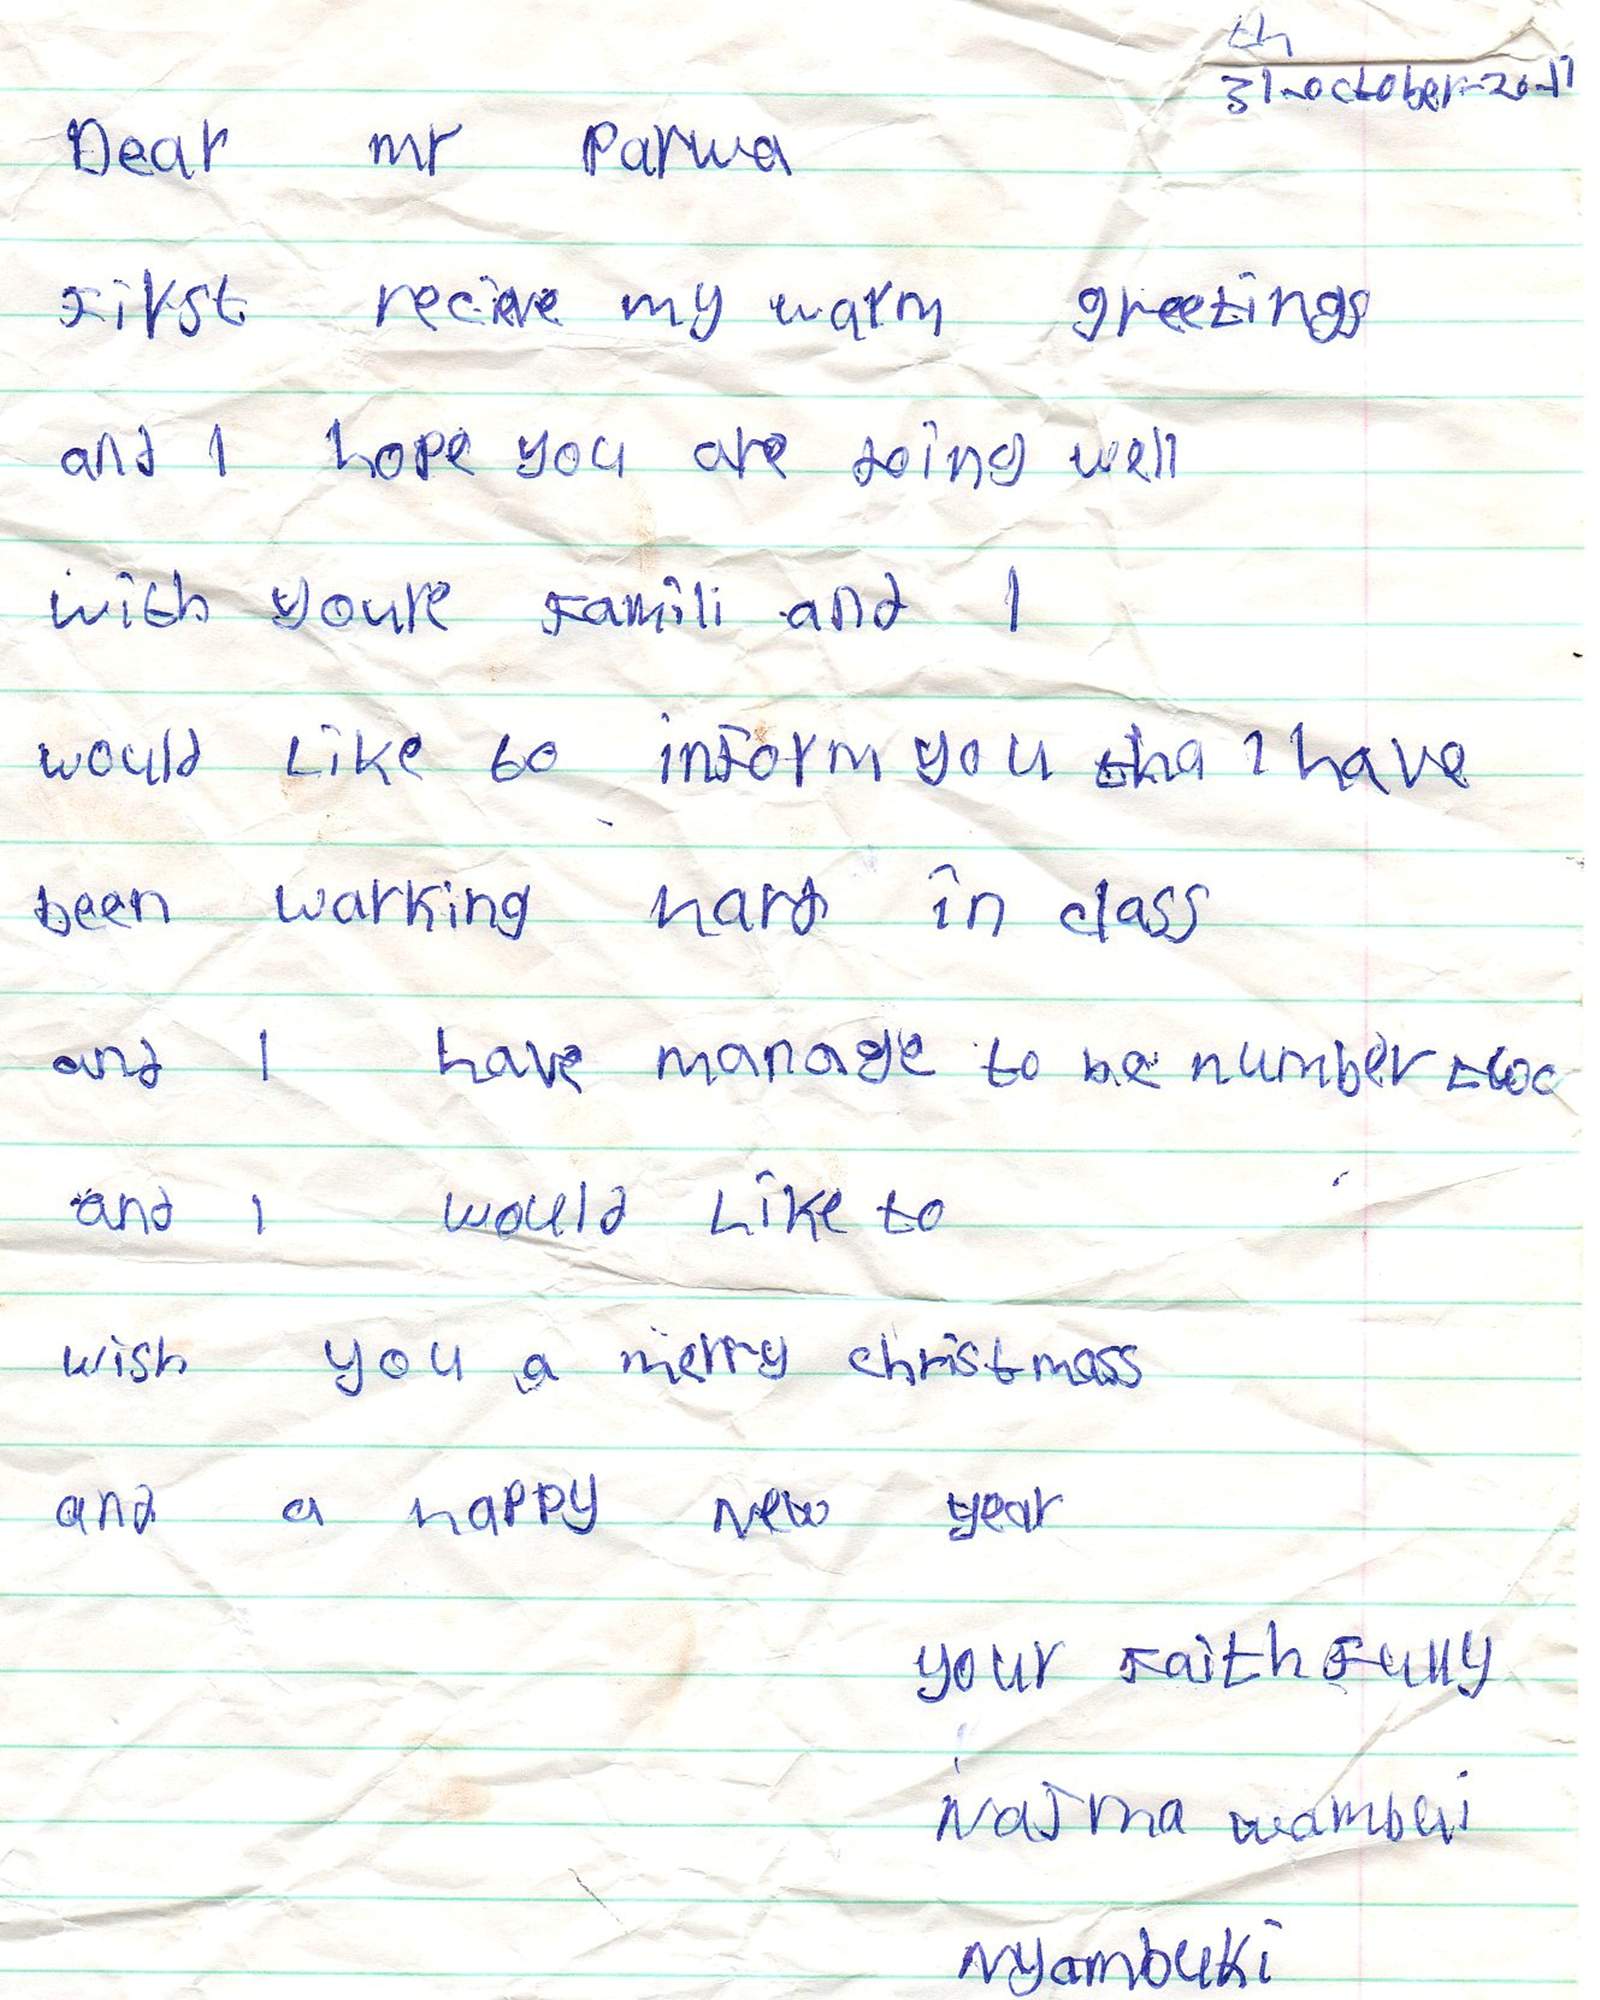 th
31-october-2011
Dear mr Parwa
First recieve my warm greetings
and I hope you are doing well
with youre Famili and I
would Like to inform you tha I have
been warking hard in class
and I have manage to be number
and I would Like to
wish you a merry christmass
and a happy New year
your Faith Fully
Najma wambui
Nyambuki